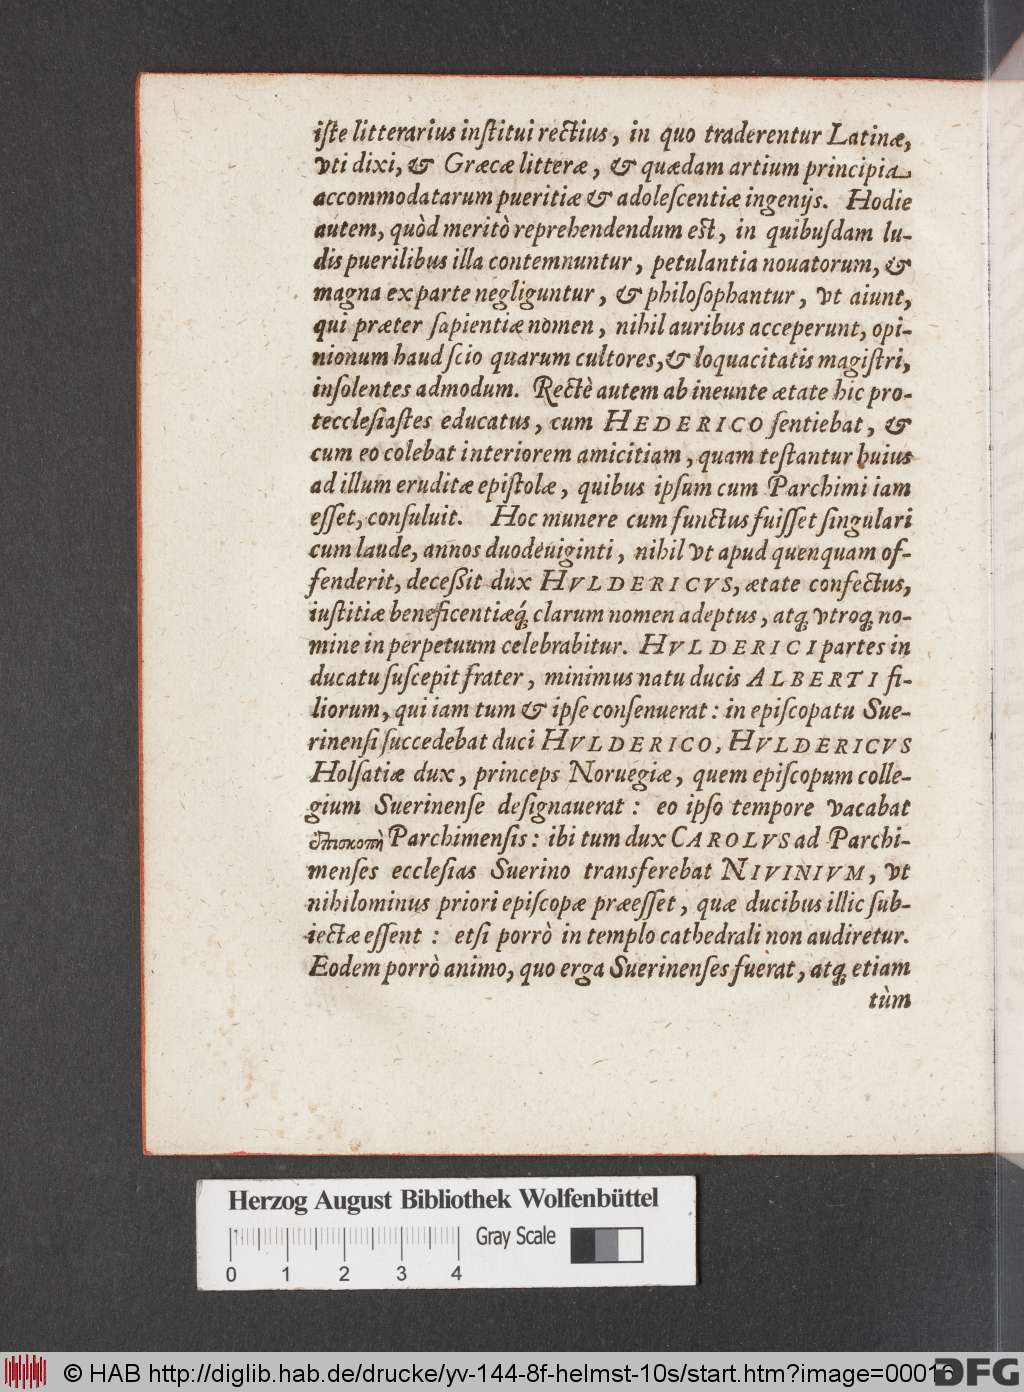 iſte litterarius inſtitui rectius, in quo traderentur Latinæ,
vti dixi, & Græcæ litteræ, & quædam artium principia
accommodatarum pueritiæ & adoleſcentiæ ingenijs. Hodie
autem, quòd meritò reprehendendum est, in quibuſdam lu-
dis puerilibus illa contemnuntur, petulantia nouatorum, &
magna ex parte negliguntur, & philoſophantur, vt aiunt,
qui præter ſapientiæ nomen, nihil auribus acceperunt, opi-
nionum haud ſcio quarum cultores, & loquacitatis magiſtri,
inſolentes admodum. Rectè autem ab ineunte ætate hic pro-
teccleſiaſtes educatus, cum HEDERICO ſentiebat, &
cum eo colebat interiorem amicitiam, quam teſtantur huius
ad illum eruditæ epiſtolæ, quibus ipſum cum Parchimi iam
eſſet, conſuluit. Hoc munere cum functus fuiſſet ſingulari
cum laude, annos duodeuiginti, nihil vt apud quenquam of-
fenderit, deceßit dux HVLDERICVS, ætate confectus,
iuſtitiæ beneficentiæq́; clarum nomen adeptus, atq; vtroq; no-
mine in perpetuum celebrabitur. HVLDERICI partes in
ducatu ſuſcepit frater, minimus natu ducis ALBERTI fi-
liorum, qui iam tum & ipſe conſenuerat: in epiſcopatu Sue-
rinenſi ſuccedebat duci HVLDERICO, HVLDERICVS
Holſatiæ dux, princeps Noruegiæ, quem epiſcopum colle-
gium Suerinenſe deſignauerat: eo ipſo tempore vacabat
ἐπισκοπὴ Parchimenſis: ibi tum dux CAROLVS ad Parchi-
menſes eccleſias Suerino transferebat NIVINIVM, vt
nihilominus priori epiſcopæ præeſſet, quæ ducibus illic ſub-
iectæ eſſent: etſi porrò in templo cathedrali non audiretur.
Eodem porrò animo, quo erga Suerinenſes fuerat, atq; etiam
tùm
Herzog August Bibliothek Wolfenbüttel
Gray Scale
0 1 2 3 4
© HAB http://diglib.hab.de/drucke/yv-144-8f-helmst-10s/start.htm?image=00016
DFG